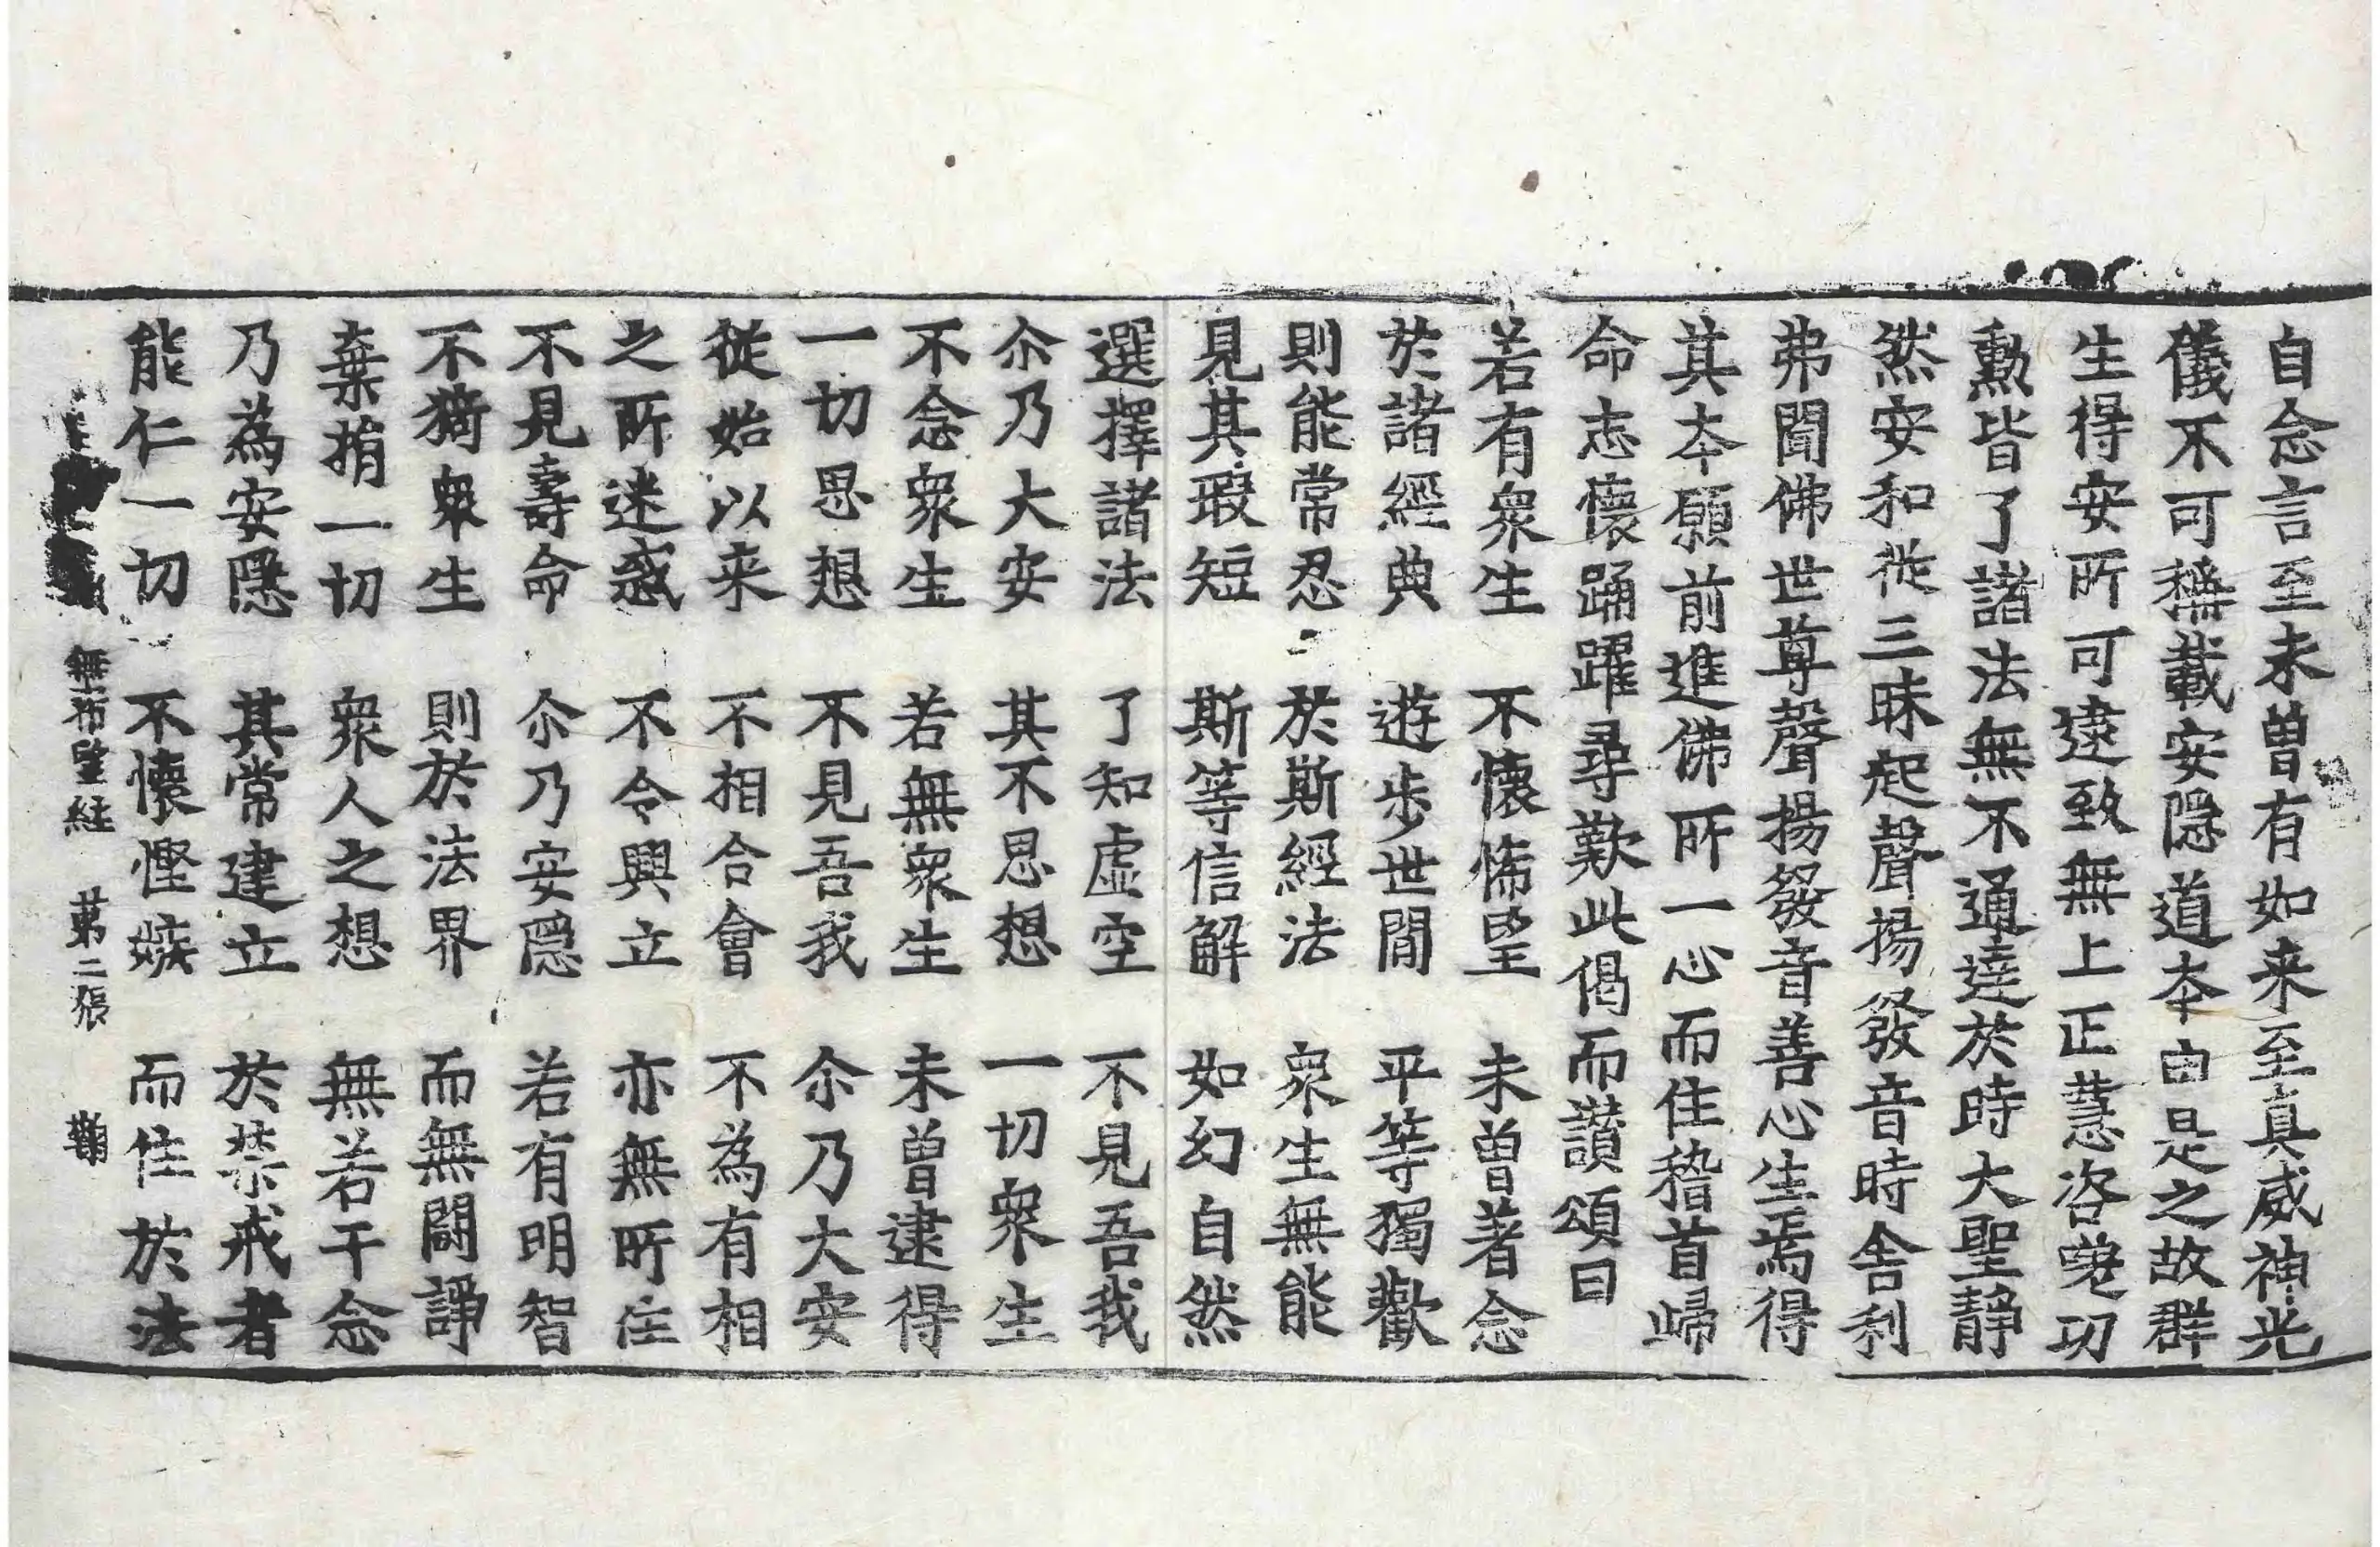 自念言至未曽有如来至真威神光
儀不可稱載安隱道夲由是之故群
生得安所可逮致無上正慧咨嗟功
勳皆了諸法無不通達於時大聖靜
然安和従三昧起聲揚發音時舎利
弗聞佛世尊聲揚發音善心生焉得
其夲願前進佛所一心而住稽首歸
命志懷踊躍尋歎此偈而讃頌曰
若有衆生　不懷悕望　未曽著念
於諸經典　遊步世間　平等獨歡
則能常忍　於斯經法　衆生無能
見其瑕短　斯等信解　如幻自然
選擇諸法　了知虛空　不見吾我
尒乃大安　其不思想　一切衆生
不念衆生　若無衆生　未曽逮得
一切思想　不見吾我　尒乃大安
從始以来　不相合會　不為有相
之所迷惑　不令興立　亦無所住
不見壽命　尒乃安隱　若有明智
不猗衆生　則於法界　而無闘諍
棄捐一切　衆人之想　無若干念
乃為安隱　其常建立　於禁戒者
能仁一切　不懷慳嫉　而住於法
無希望経　第二張